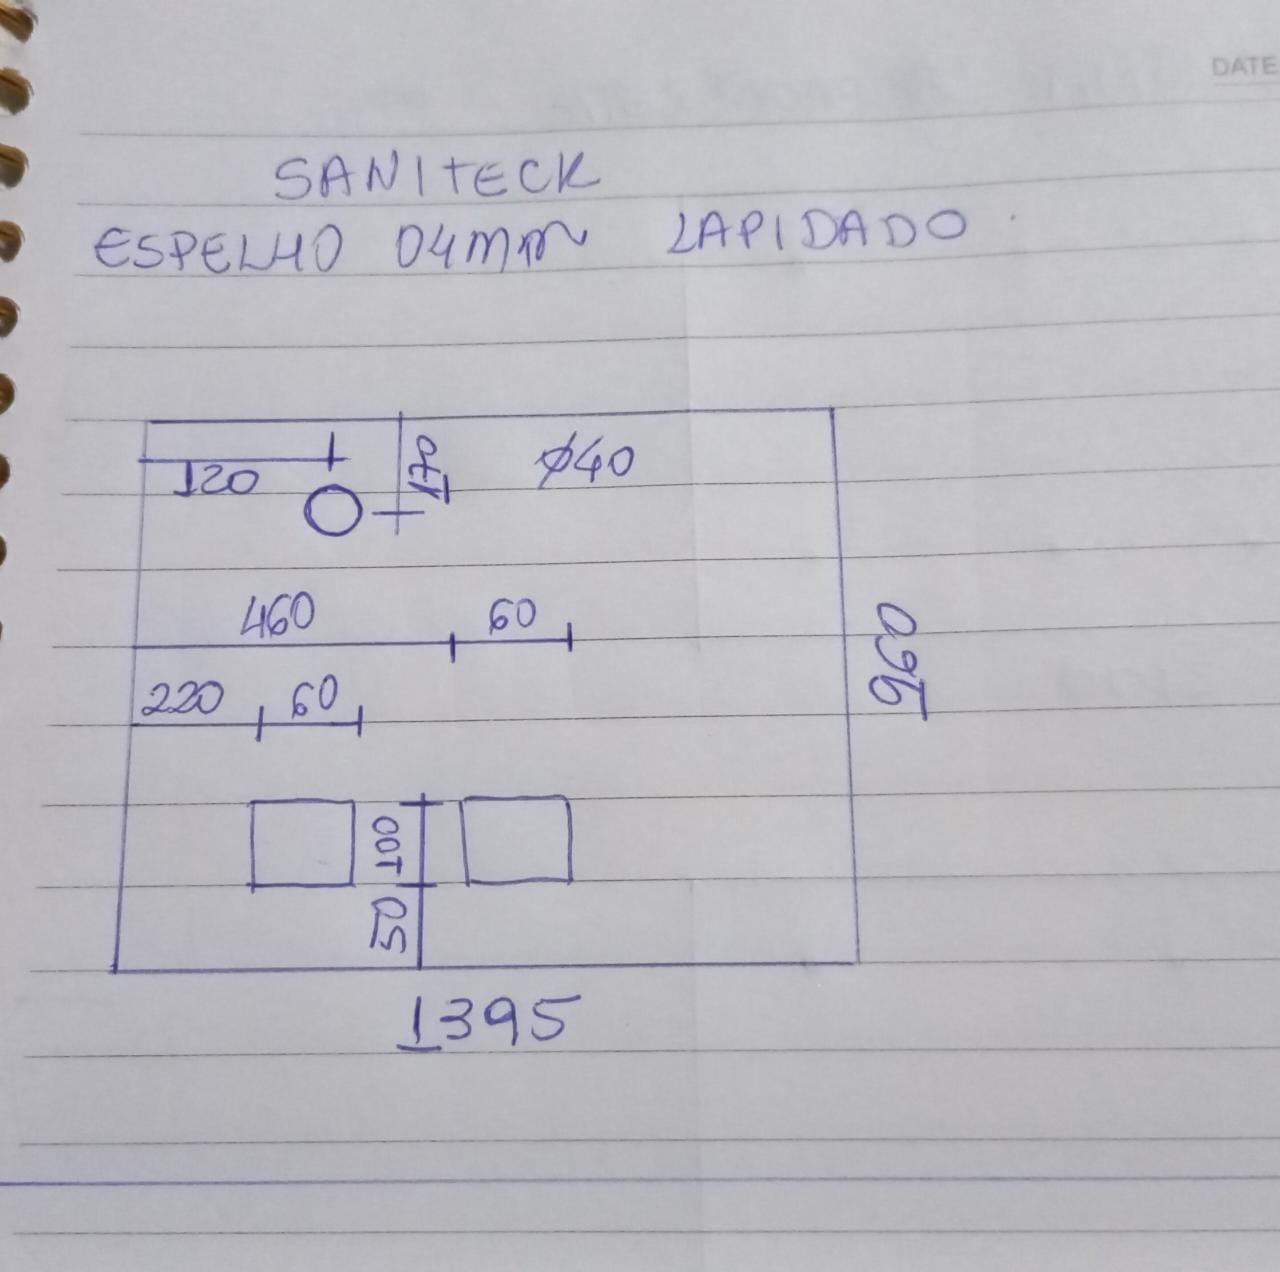 DATE
SANITECK
ESPELHO 04mm LAPIDADO
120
170
Ø40
460
60
220
60
960
100
50
1395